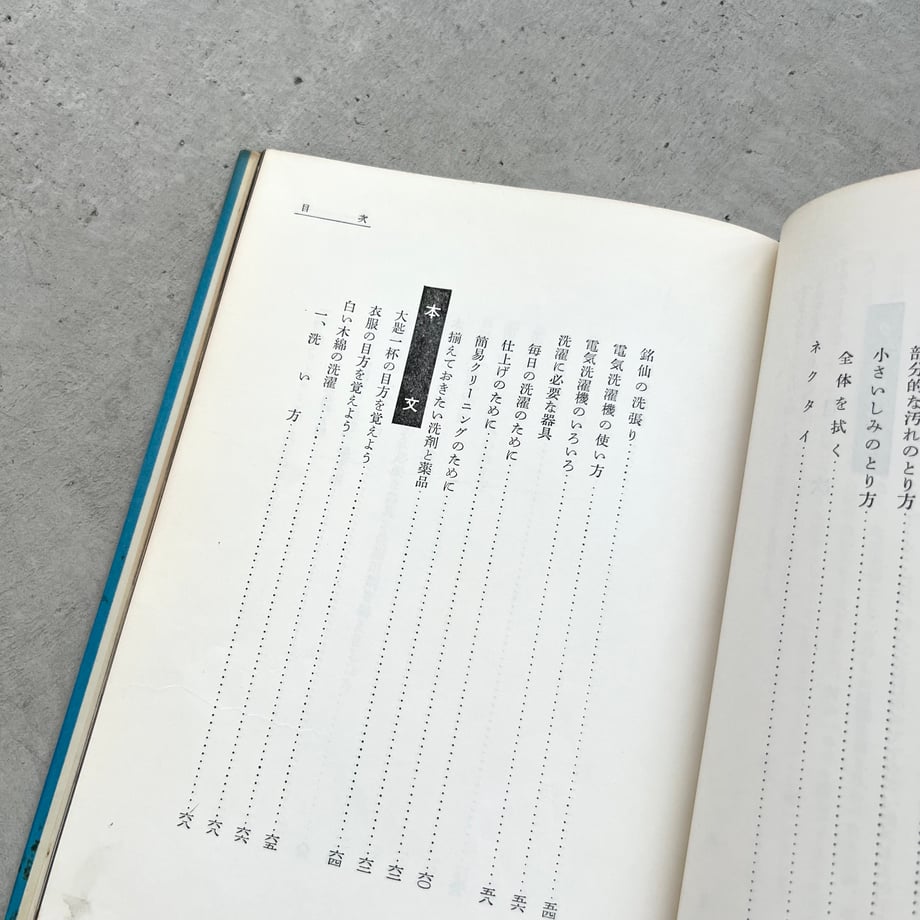 部分的な汚れのとり方
小さいしみのとり方
全体を拭く
ネクタイ
目次
銘仙の洗張り……五四
電気洗濯機の使い方……五六
電気洗濯機のいろいろ……五八
洗濯に必要な器具
毎日の洗濯のために……六〇
仕上げのために……六二
簡易クリーニングのために……六二
揃えておきたい洗剤と薬品……六四
本文
大匙一杯の目方を覚えよう……六五
衣服の目方を覚えよう……六六
白い木綿の洗濯……六八
一、洗い方……六八